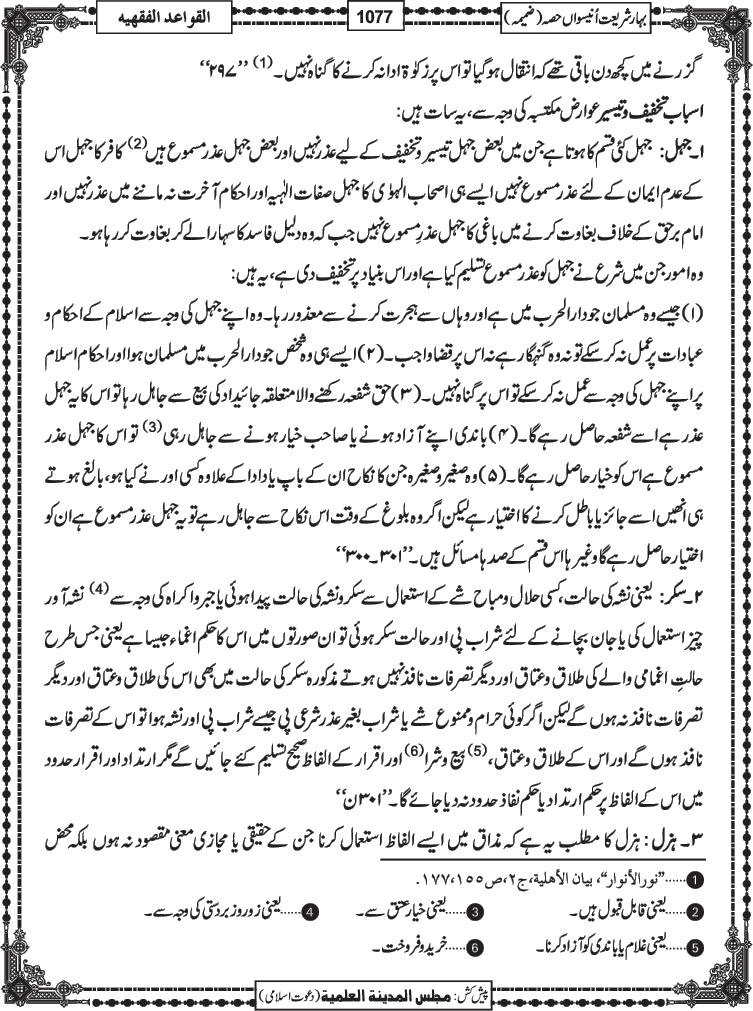 بہار شریعت اُنیسواں حصہ (ضمیمہ)
1077
القواعد الفقهيه
گزرنے میں کچھ دن باقی تھے کہ انتقال ہوگیا تو اس پر زکوٰۃ ادا نہ کرنے کا گناہ نہیں۔(1) ”۲۹۷“
اسباب تخفیف و تیسیر عوارض مکتسبہ کی وجہ سے، یہ سات ہیں:
۱۔جہل: جہل کئی قسم کا ہوتا ہے جن میں بعض جہل تیسیر و تخفیف کے لیے عذر نہیں اور بعض جہل عذر مسموع ہیں(2) کافر کا جہل اس
کے عدم ایمان کے لئے عذر مسموع نہیں ایسے ہی اصحاب الہوٰی کا جہل صفات الٰہیہ اور احکام آخرت نہ ماننے میں عذر نہیں اور
امام برحق کے خلاف بغاوت کرنے میں باغی کا جہل عذرِ مسموع نہیں جب کہ وہ دلیل فاسد کا سہارا لے کر بغاوت کر رہا ہو۔
وہ امور جن میں شرع نے جہل کو عذر مسموع تسلیم کیا ہے اور اس بنیاد پر تخفیف دی ہے، یہ ہیں:
(۱) جیسے وہ مسلمان جو دارالحرب میں ہے اور وہاں سے ہجرت کرنے سے معذور رہا۔ وہ اپنے جہل کی وجہ سے اسلام کے احکام و
عبادات پر عمل نہ کرسکے تو نہ وہ گنہگار ہے نہ اس پر قضا واجب۔ (۲) ایسے ہی وہ شخص جو دارالحرب میں مسلمان ہوا اور احکام اسلام
پر اپنے جہل کی وجہ سے عمل نہ کرسکے تو اس پر گناہ نہیں۔ (۳) حق شفعہ رکھنے والا متعلقہ جائیداد کی بیع سے جاہل رہا تو اس کا یہ جہل
عذر ہے اسے شفعہ حاصل رہے گا۔ (۴) باندی اپنے آزاد ہونے یا صاحب خیار ہونے سے جاہل رہی(3) تو اس کا جہل عذر
مسموع ہے اس کو خیار حاصل رہے گا۔ (۵) وہ صغیر و صغیرہ جن کا نکاح ان کے باپ یا دادا کے علاوہ کسی اور نے کیا ہو، بالغ ہوتے
ہی انھیں اسے جائز یا باطل کرنے کا اختیار ہے لیکن اگر وہ بلوغ کے وقت اس نکاح سے جاہل رہے تو یہ جہل عذر مسموع ہے ان کو
اختیار حاصل رہے گا وغیرہا اس قسم کے صدہا مسائل ہیں۔ ”۳۰۱۔۳۰۰“
۲۔سکر: یعنی نشہ کی حالت، کسی حلال و مباح شے کے استعمال سے سکر و نشہ کی حالت پیدا ہوئی یا جبر و اکراہ کی وجہ سے(4) نشہ آور
چیز استعمال کی یا جان بچانے کے لئے شراب پی اور حالت سکر ہوئی تو ان صورتوں میں اس کا حکم اغماء جیسا ہے یعنی جس طرح
حالتِ اغمامی والے کی طلاق و عتاق اور دیگر تصرفات نافذ نہیں ہوتے مذکورہ سکر کی حالت میں بھی اس کی طلاق و عتاق اور دیگر
تصرفات نافذ نہ ہوں گے لیکن اگر کوئی حرام و ممنوع شے یا شراب بغیر عذر شرعی پی جیسے شراب پی اور نشہ ہوا تو اس کے تصرفات
نافذ ہوں گے اور اس کے طلاق و عتاق،(5) بیع و شرا(6) اور اقرار کے الفاظ صحیح تسلیم کئے جائیں گے مگر ارتداد اور اقرار حدود
میں اس کے الفاظ پر حکم ارتداد یا حکم نفاذ حدود نہ دیا جائے گا۔ ”۳۰۱ن“
۳۔ ہزل: ہزل کا مطلب یہ ہے کہ مذاق میں ایسے الفاظ استعمال کرنا جن کے حقیقی یا مجازی معنی مقصود نہ ہوں بلکہ محض
1 ......”نور الأنوار“، بيان الأهلية، ج۲، ص۱۷۷،۱۵۵.
2 ......یعنی قابل قبول ہیں۔ 3 ......یعنی خیار عتق سے۔ 4 ......یعنی زور و زبردستی کی وجہ سے۔
5 ......یعنی غلام یا باندی کو آزاد کرنا۔ 6 ......خرید و فروخت۔
پیش کش: مجلس المدينة العلمية (دعوت اسلامی)